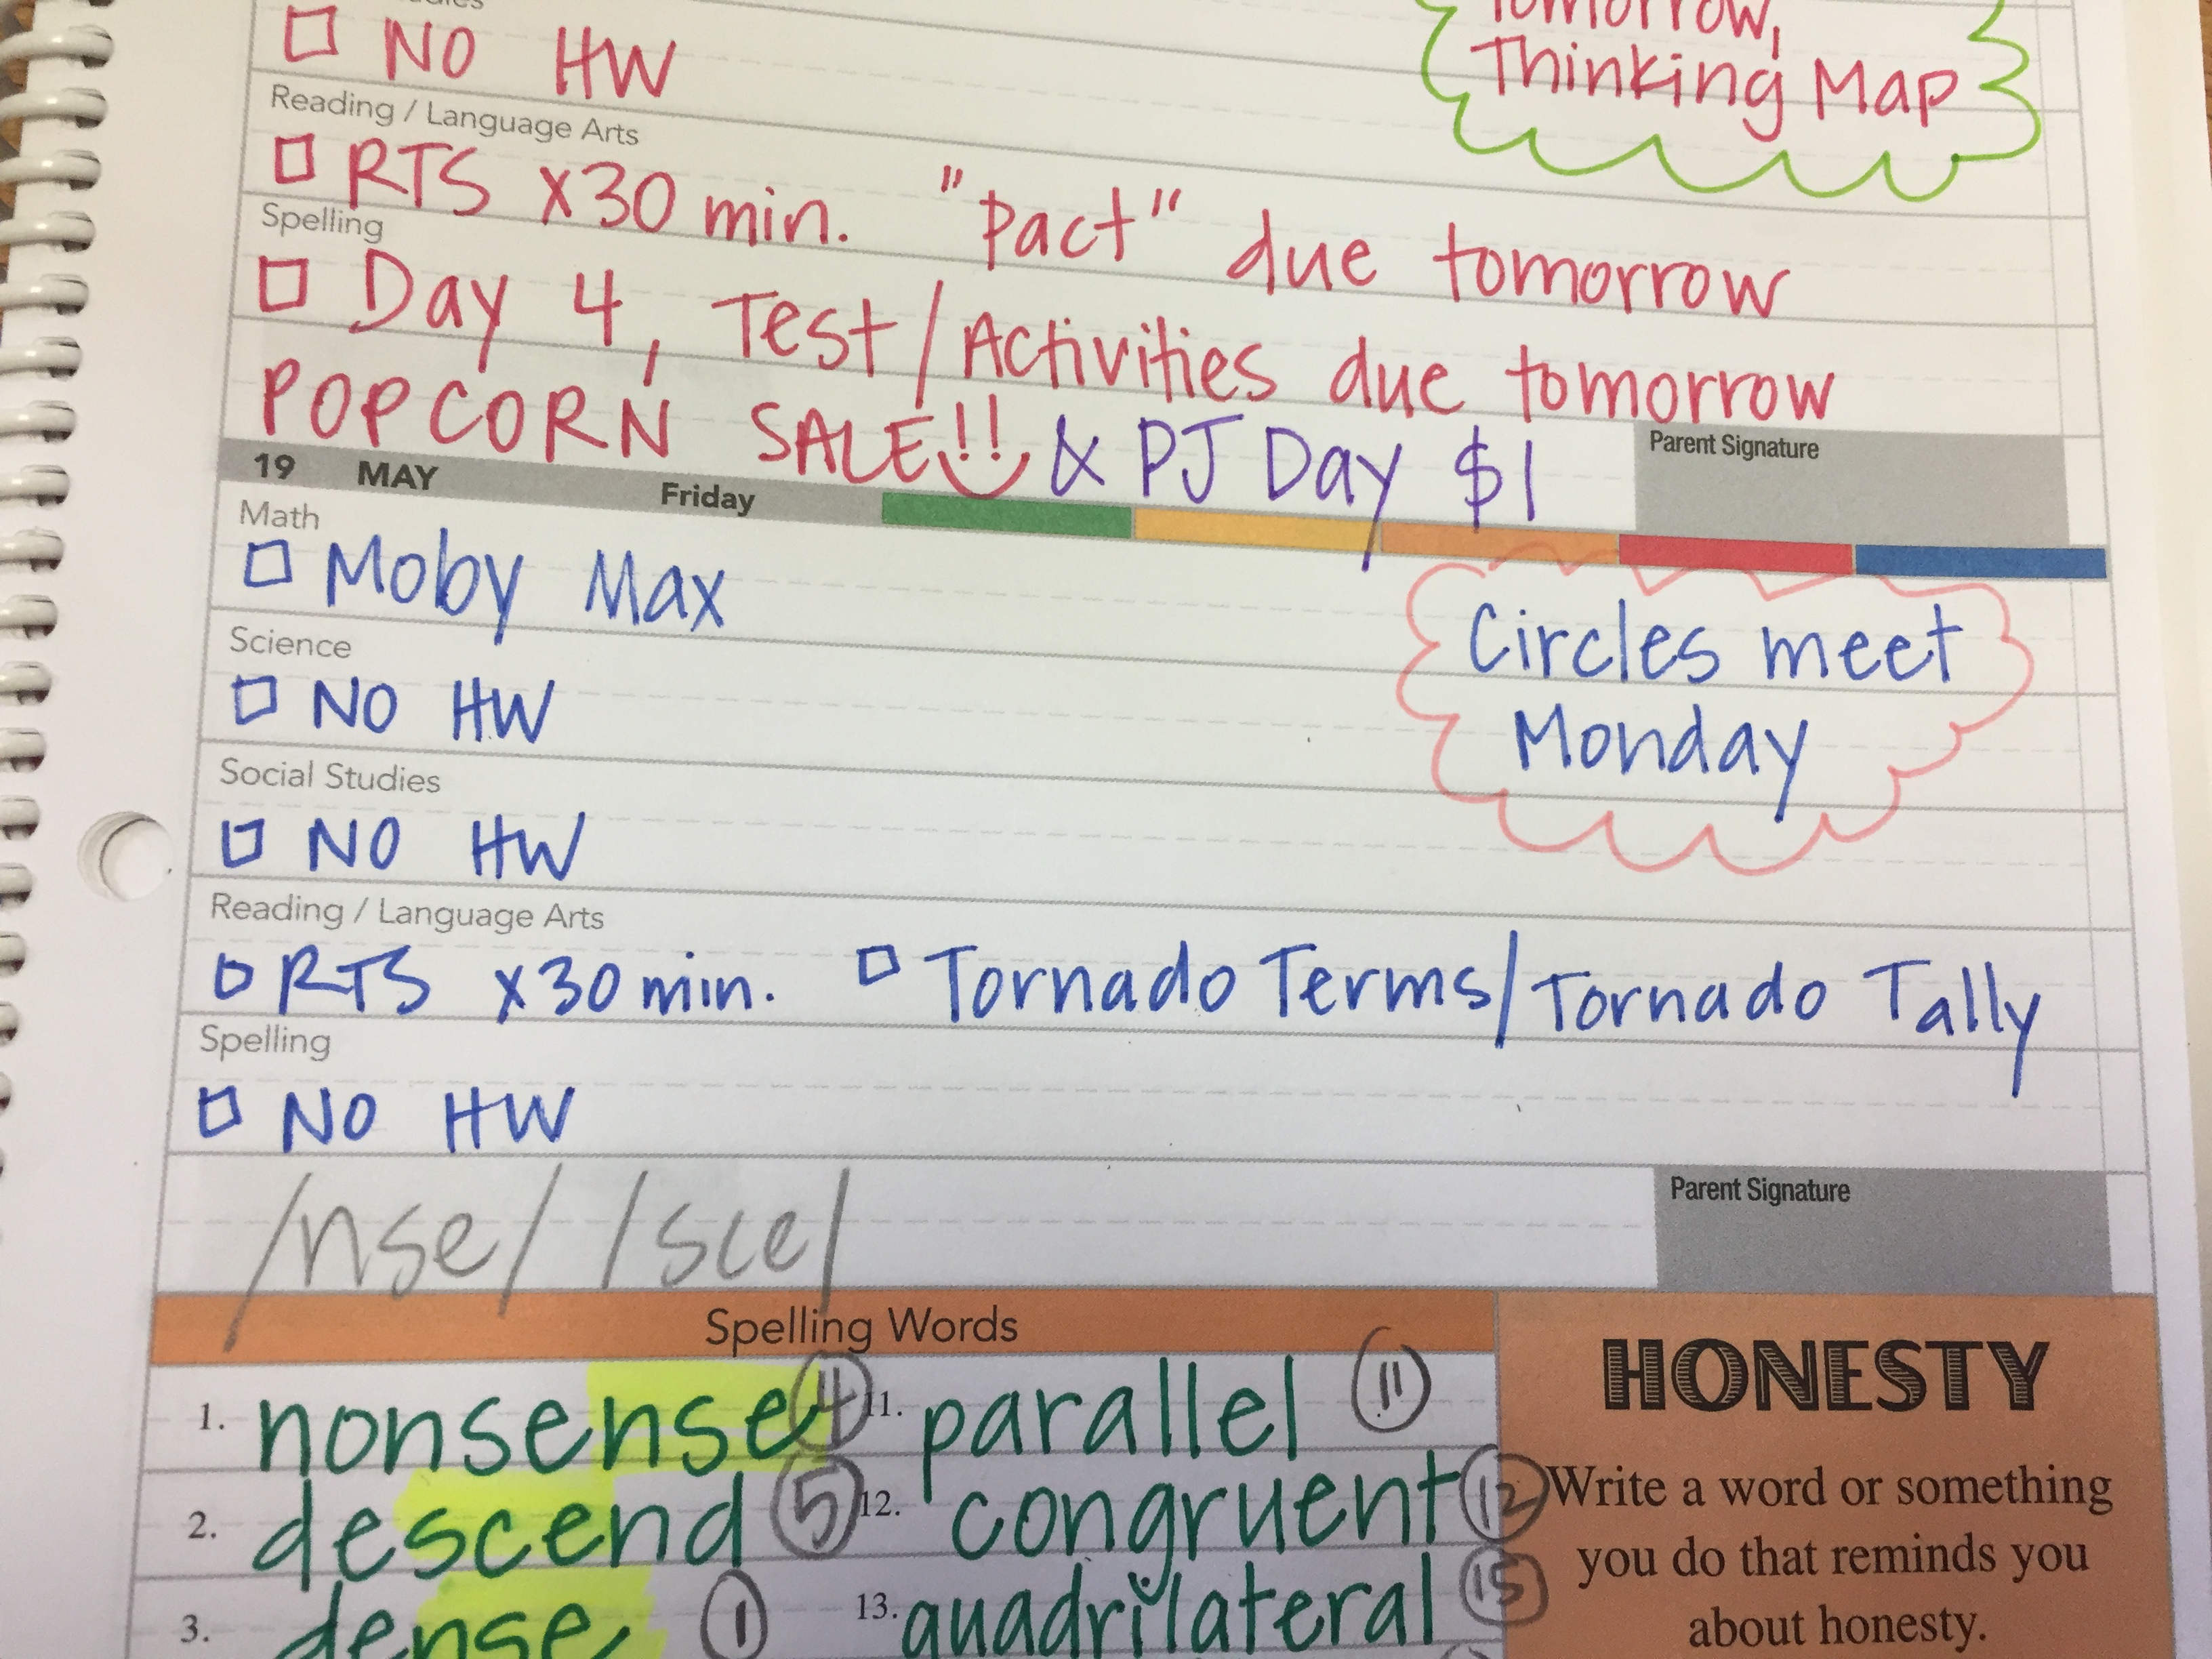 □ NO HW
tomorrow,
Thinking Map
Reading / Language Arts
□ RTS x30 min. "Pact" due tomorrow
Spelling
□ Day 4, Test/Activities due tomorrow
POPCORN SALE!! & PJ Day $1
Parent Signature
19 MAY Friday
Math
□ Moby Max
Circles meet
Monday
Science
□ NO HW
Social Studies
□ NO HW
Reading / Language Arts
□ RTS x30 min. □ Tornado Terms/Tornado Tally
Spelling
□ NO HW
Parent Signature
/nse/ /sce/
Spelling Words
1. nonsense 4
2. descend 5
3. dense 1
11. parallel 11
12. congruent 12
13. quadrilateral 15
HONESTY
Write a word or something
you do that reminds you
about honesty.